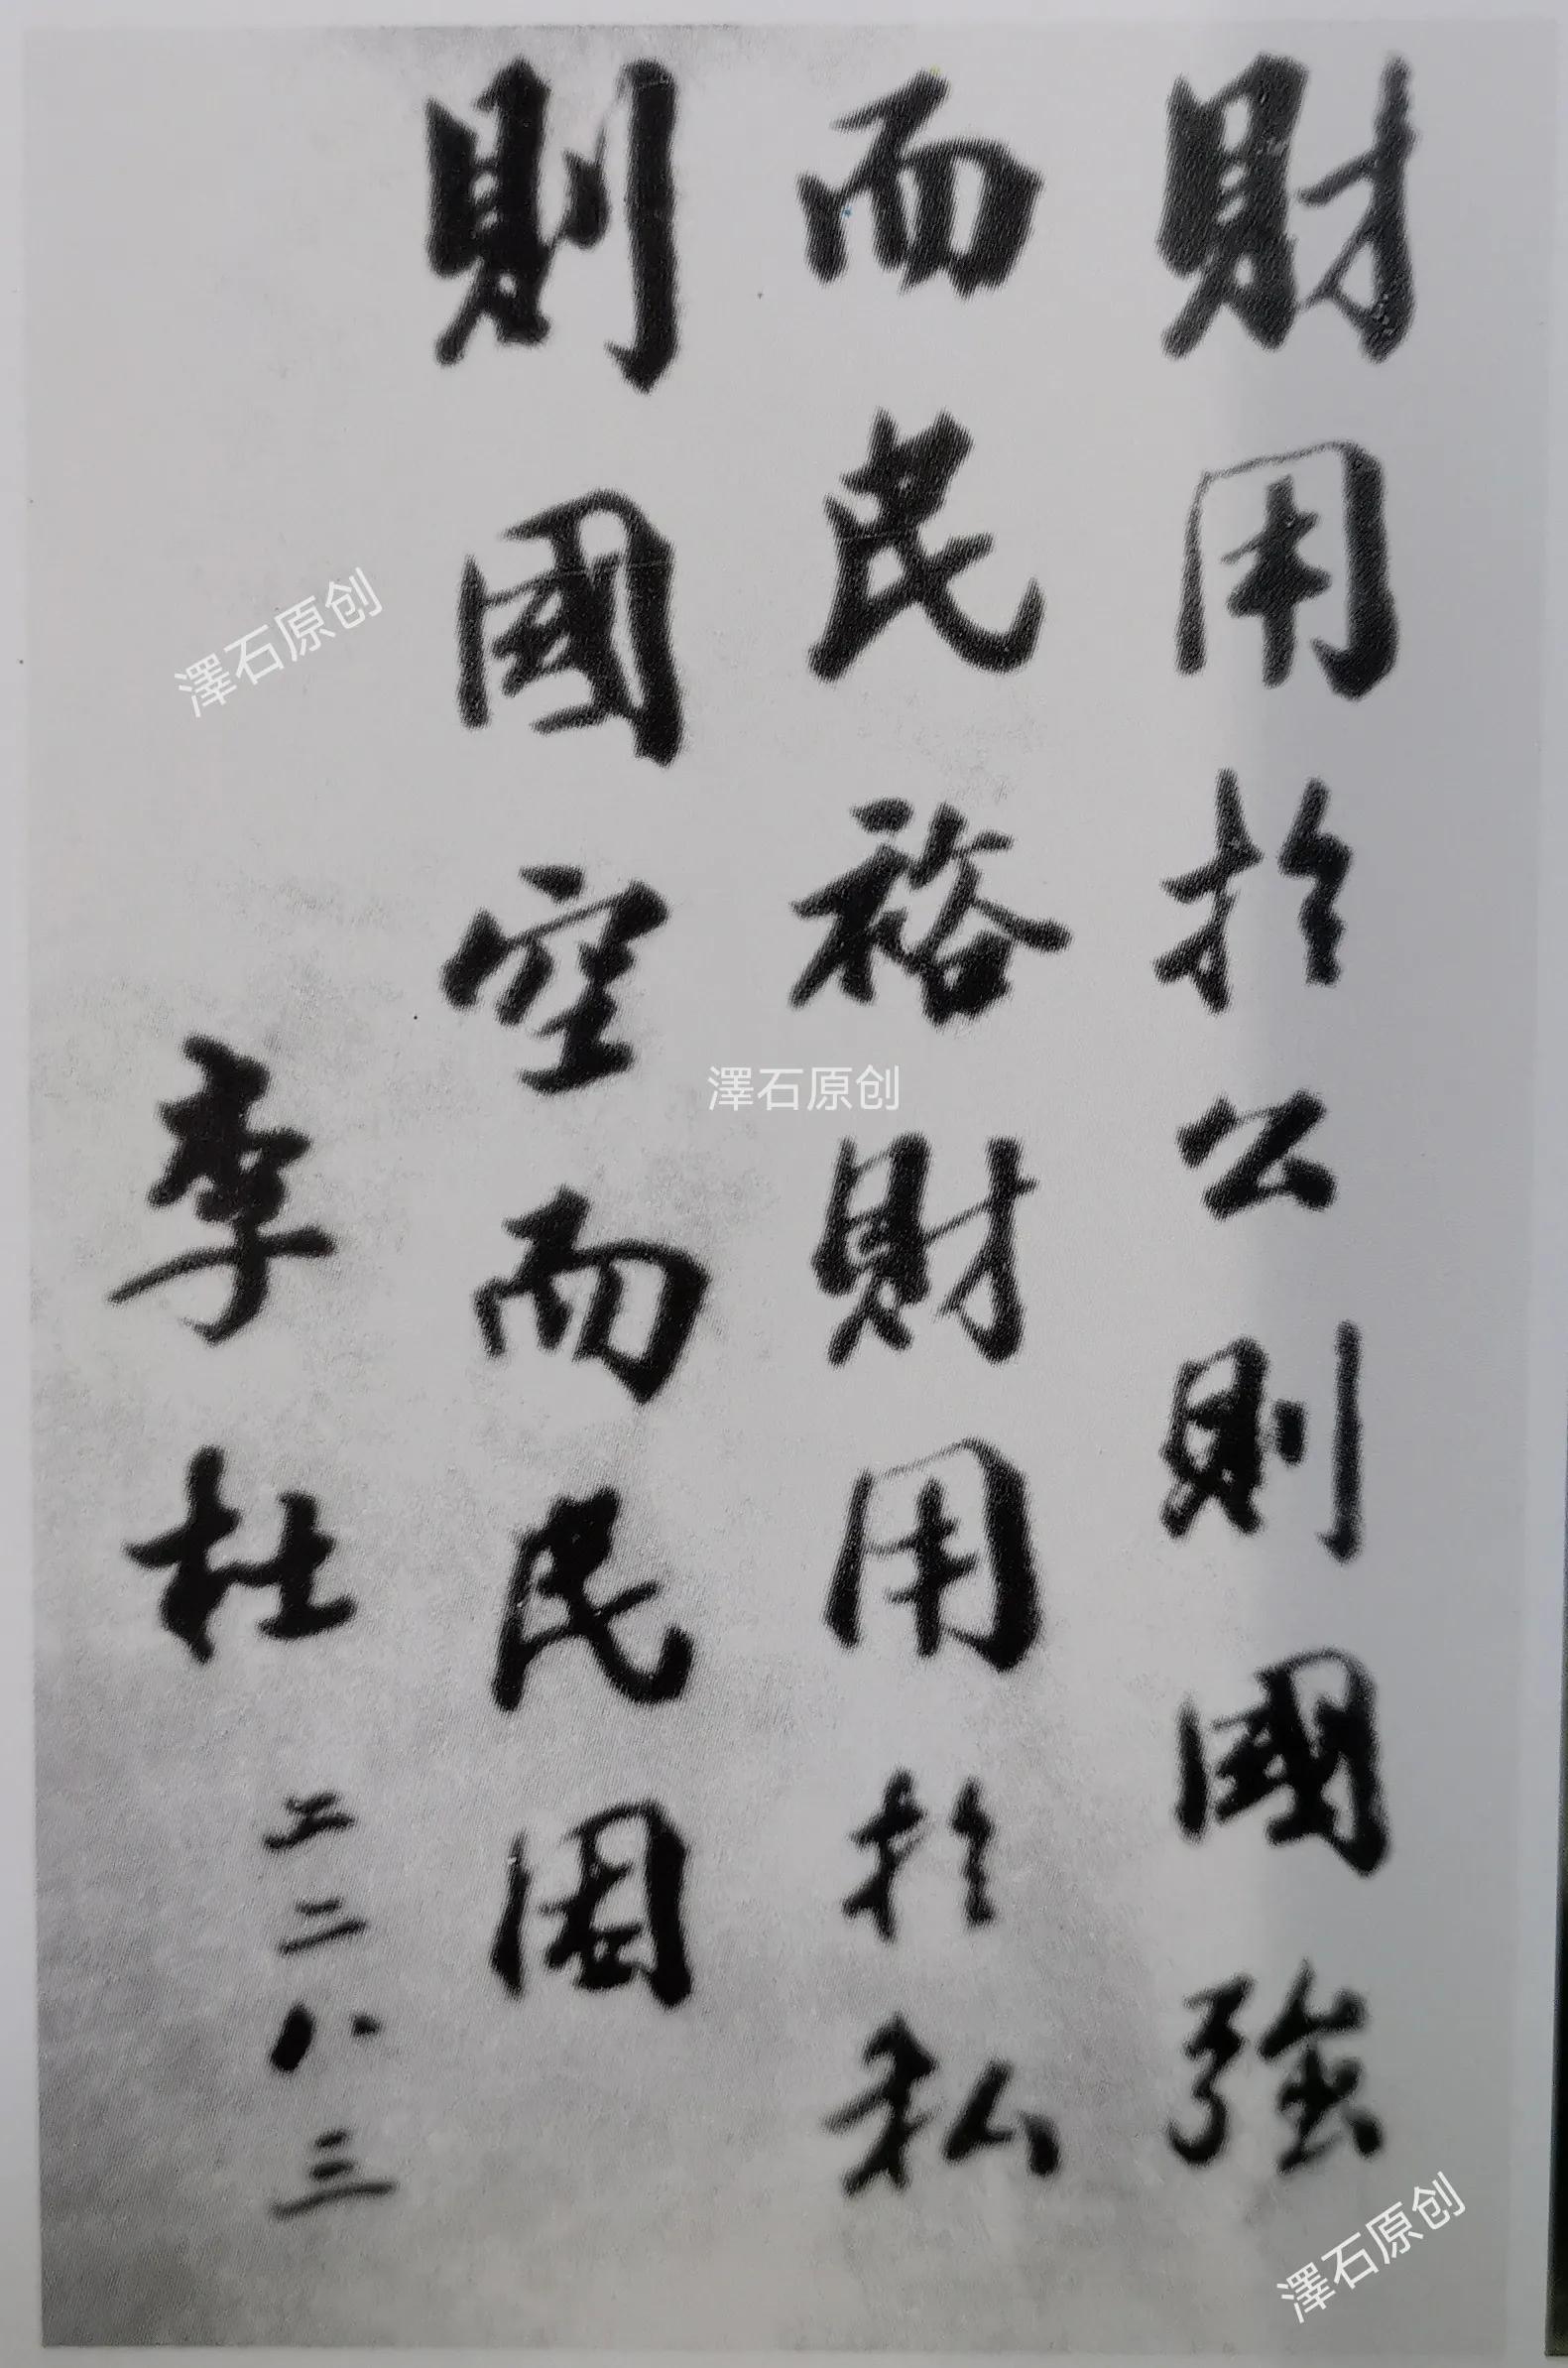 財用於公則國強
而民裕財用於私
則國空而民困
李杜 二二八三
澤石原创
澤石原创
澤石原创